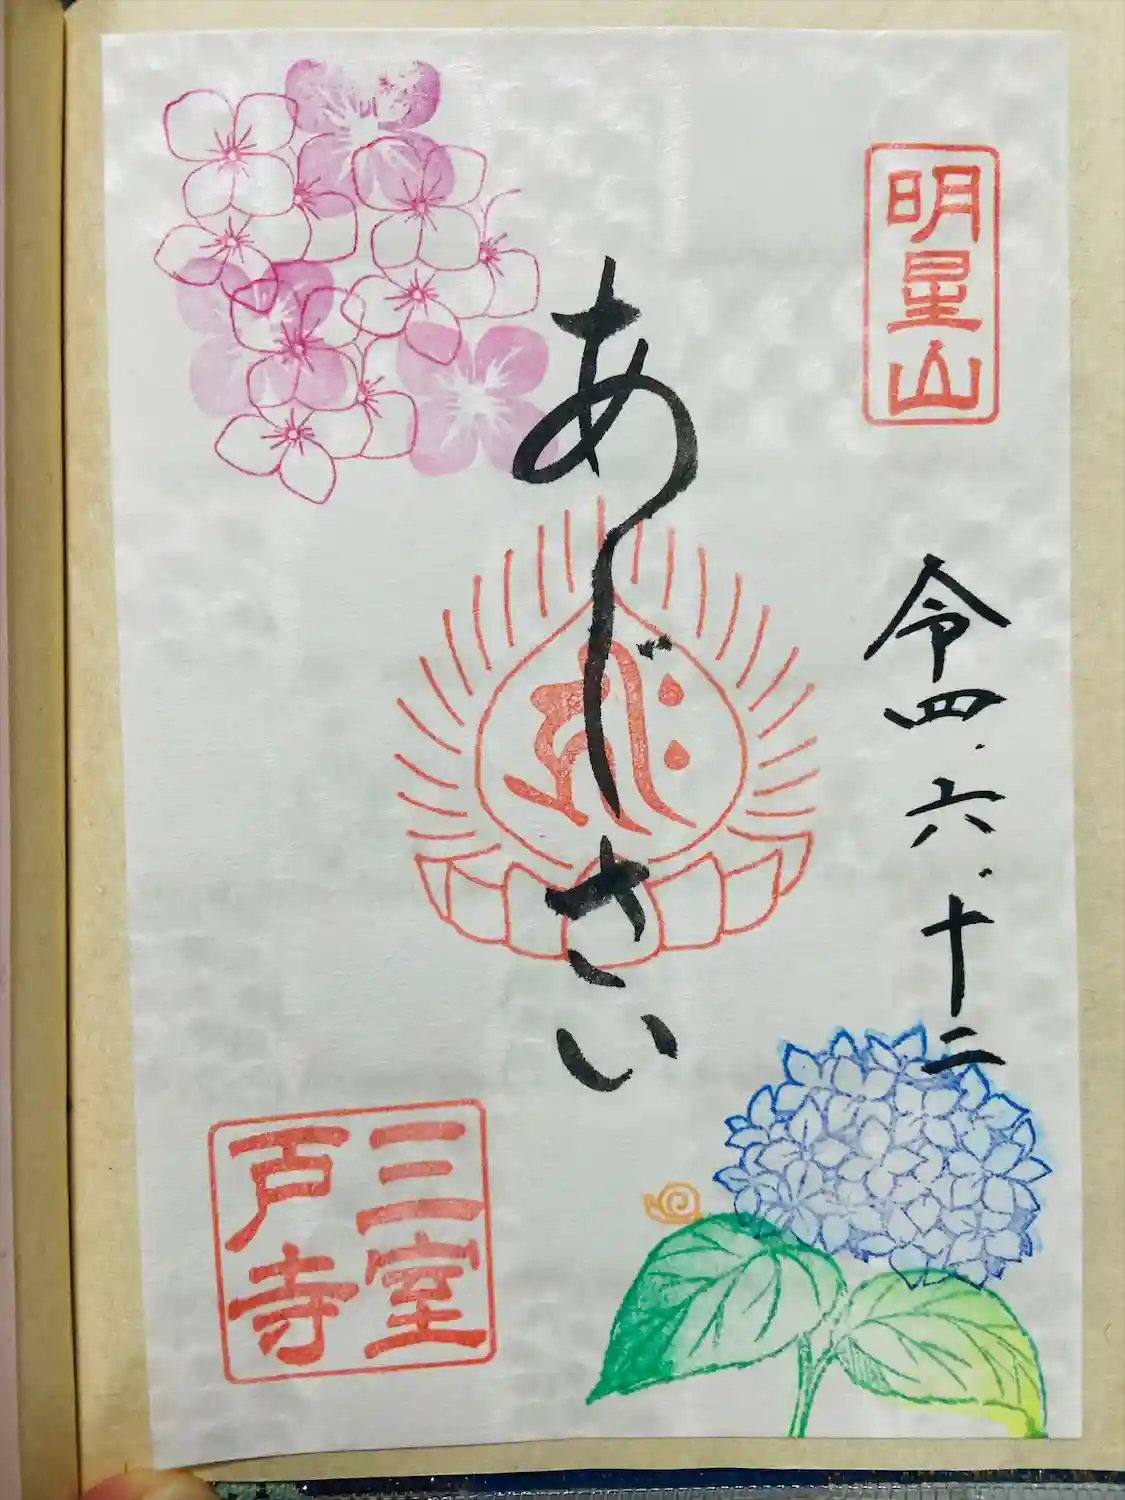 明星山
令四.六.十二
あじさい
三室戸寺